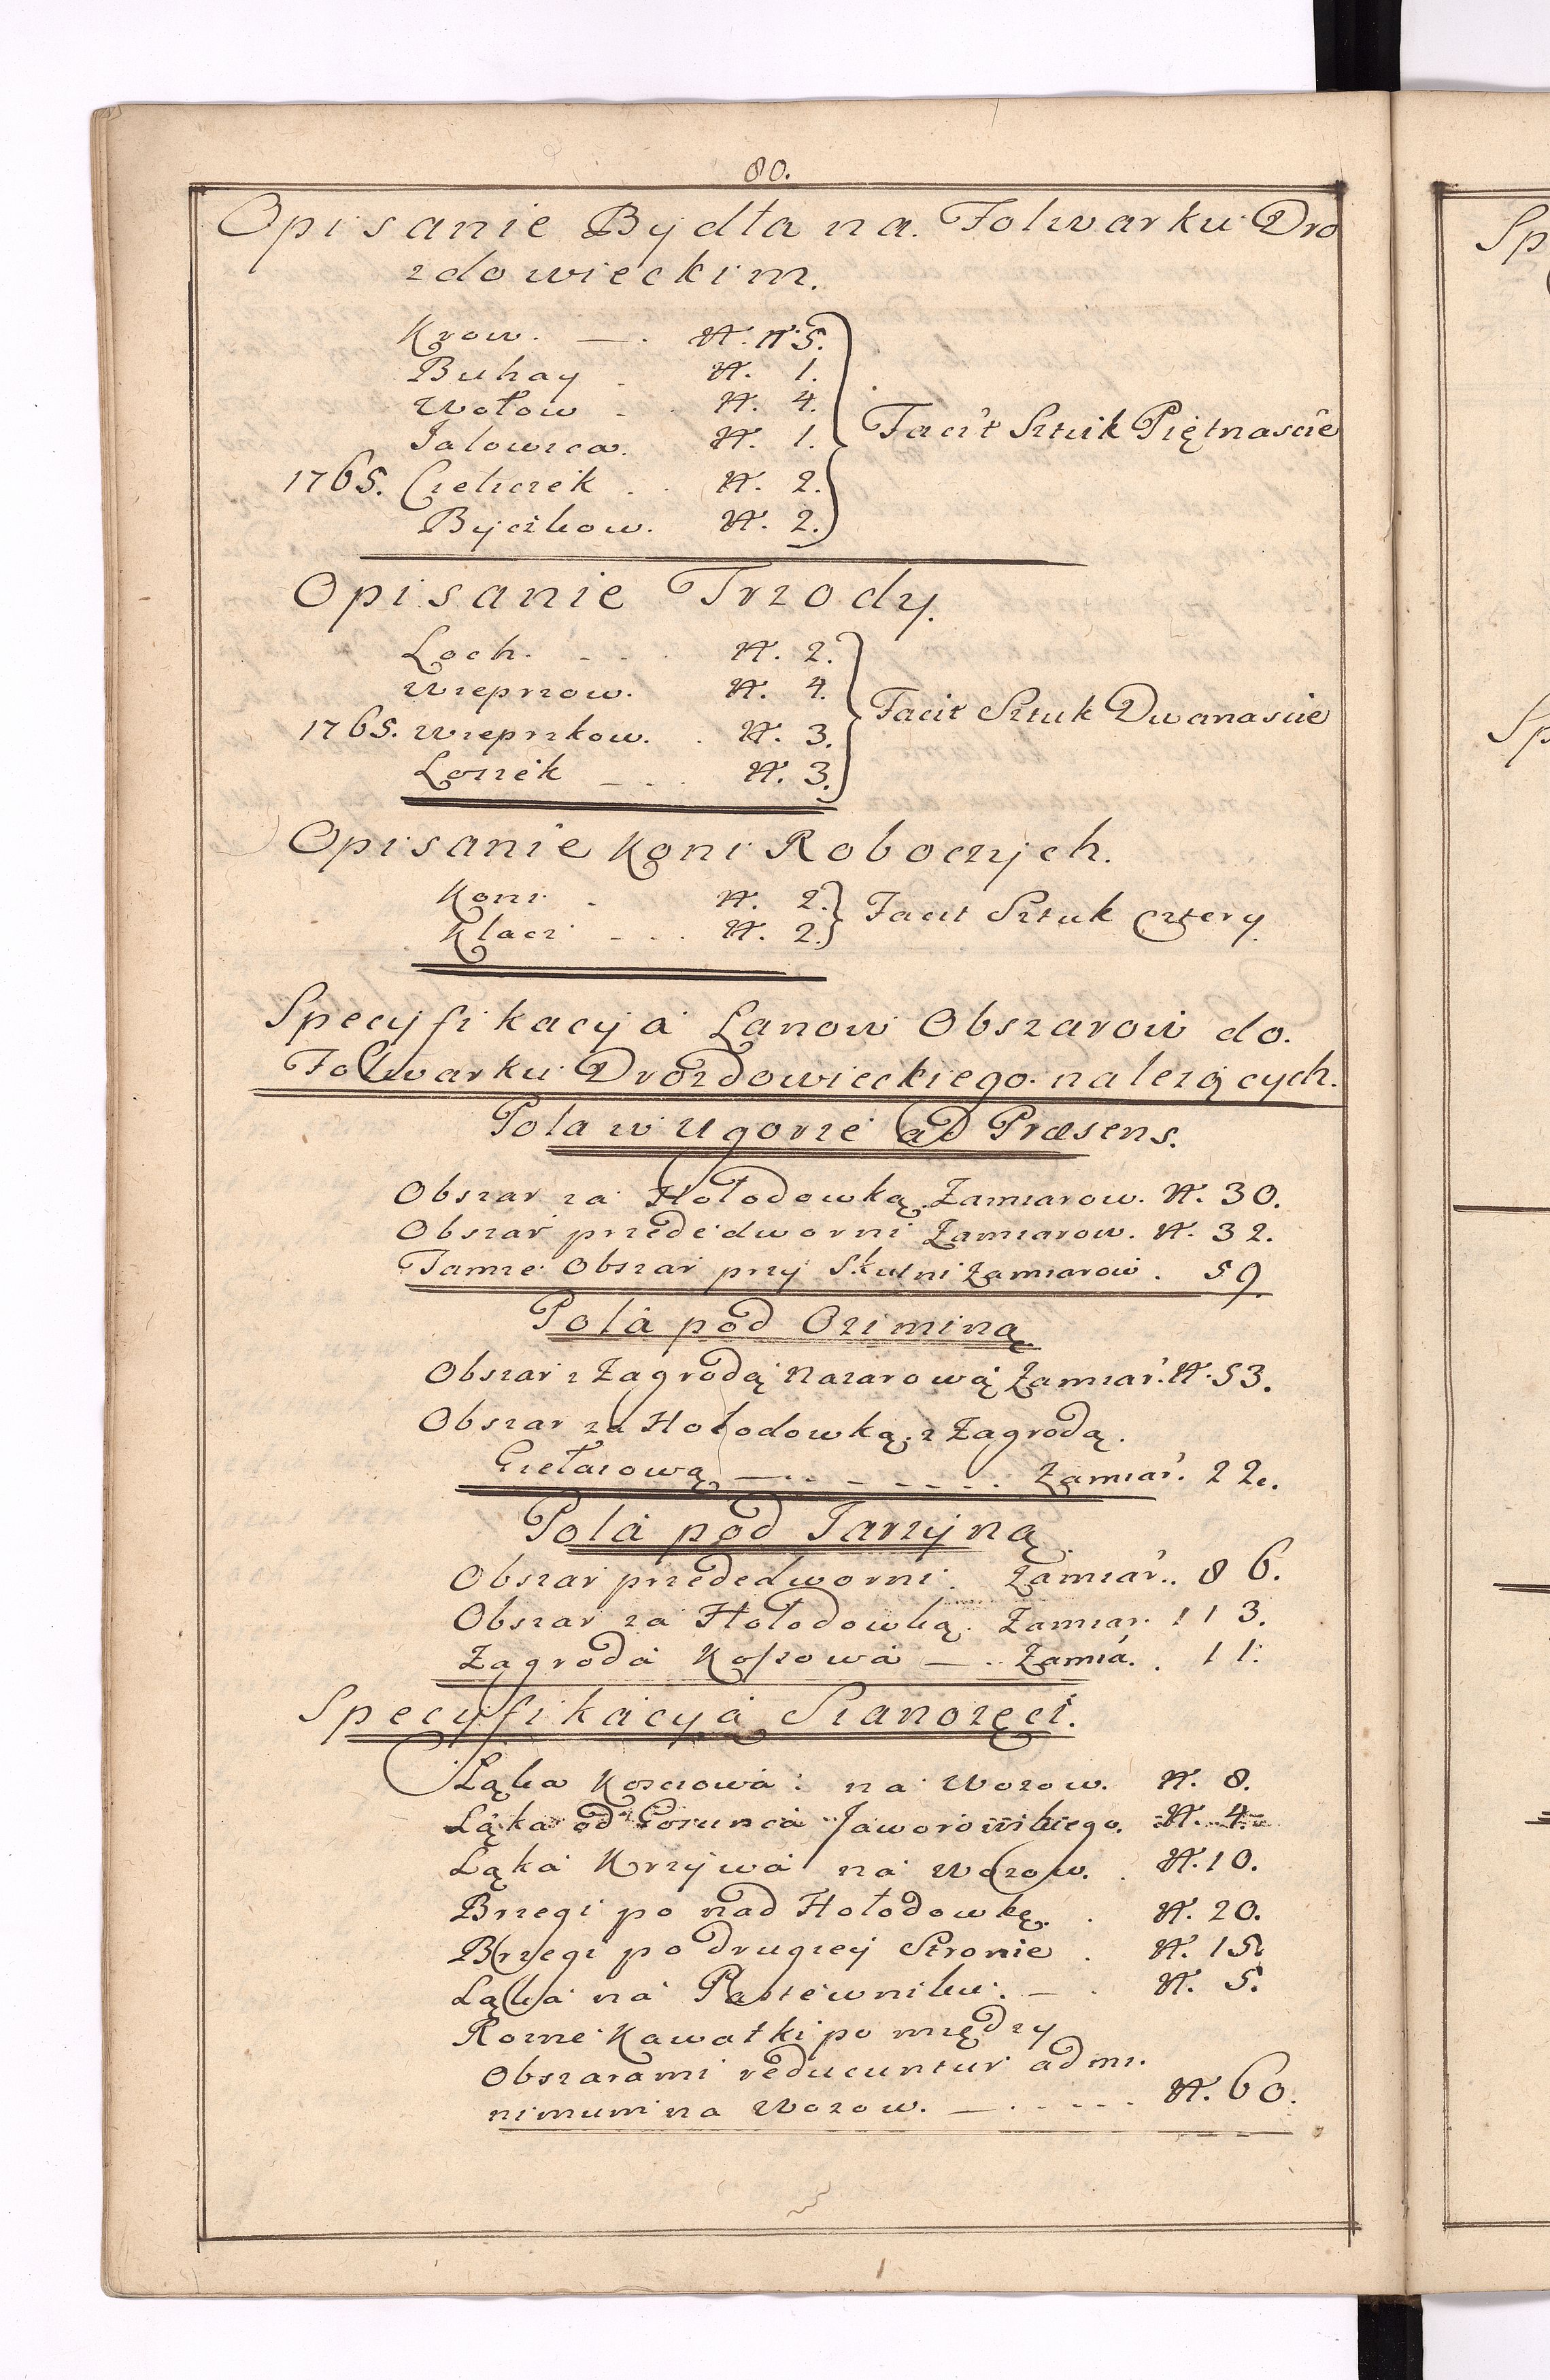 80.
Opisanie Bydła na Folwarku Dro
zdowieckim.
Krow. N. 5.
Buhay N. 1.
Wołow N. 4.
Jałowica. N. 1.
Facit Sztuk Piętnascie
1765. Cieliczek N. 2.
Byczkow. N. 2.
Opisanie Trzody.
Loch. N. 2.
Wieprzow. N. 4.
Facit Sztuk Dwanascie
1765. Wieprzkow. N. 3.
Loszek N. 3.
Opisanie Koni Roboczych.
Koni N. 2.
Facit Sztuk cztery
Klacz N. 2.
Specyfikacyia Lanow Obszarow do
Folwarku Drozdowieckiego należących.
Pola w Ugorze ad Præsens.
Obszar za Hołodowką Zamiarow. N. 30.
Obszar przededworni Zamiarow. N. 32.
Tamże Obszar przy Zamiarow. 59.
Pola pod Oziminą
Obszar z Zagrodą Nazarową Zamiar. N. 53.
Obszar za Hołodowką z Zagrodą
Zamiar. 22.
Pola pod Jarzyną
Obszar przededworni Zamiar. 86.
Obszar za Hołodowką. Zamiar. 113.
Zagroda Zamia. 11.
Specyfikacyia Sianożęci.
Łąka na Wozow. N. 8.
Łąka od Jaworowskiego. N. 4.
Łąka Krzywa na Wozow. N. 10.
Brzegi po nad Hołodowkę. N. 20.
Brzegi po drugiey Stronie N. 15.
Łąka na Pastewniku. N. 5.
Rozne Kawałki po między
Obszarami reducuntur ad mi-
nimum na Wozow. N. 60.